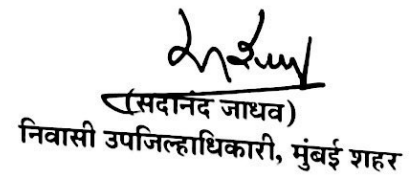 (सदानंद जाधव)
निवासी उपजिल्हाधिकारी, मुंबई शहर